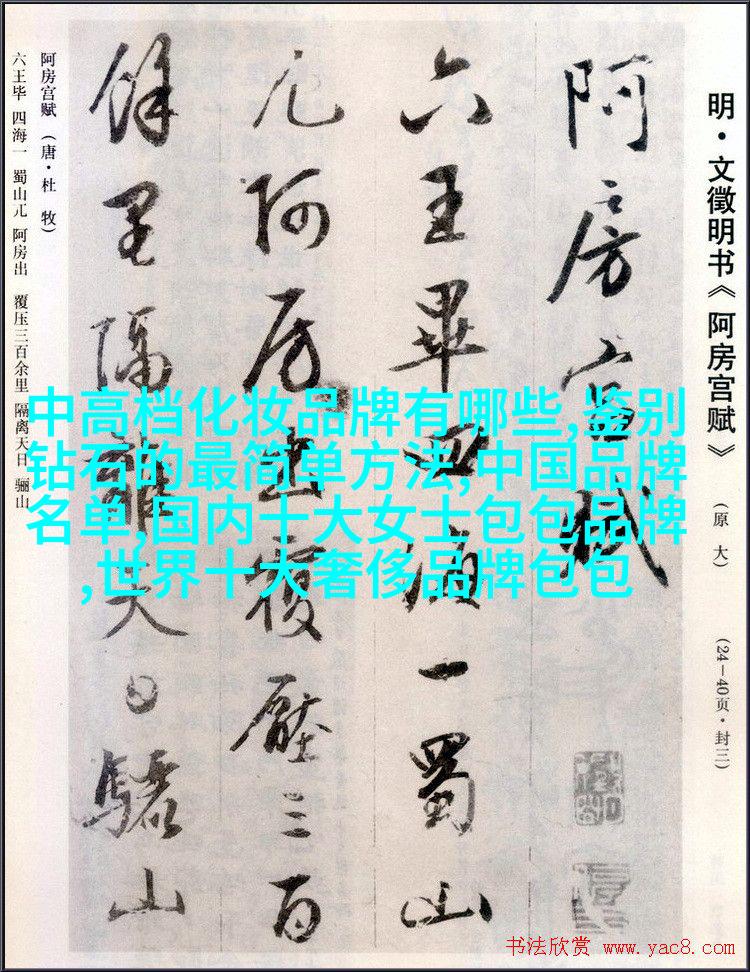 明·文徵明书《阿房宫赋》 (原大) (24—40页·封三)
阿房宫赋
六王畢四海一蜀山
兀阿房出覆壓三百
餘里隔離天日驪山
阿房宫赋(唐·杜 牧)
六王毕 四海一 蜀山兀 阿房出 覆压三百余里 隔离天日 骊山
中高档化妆品牌有哪些,鉴别
钻石的最简单方法,中国品牌
名单,国内十大女士包包品牌
,世界十大奢侈品牌包包
书法欣赏 www.yac8.com